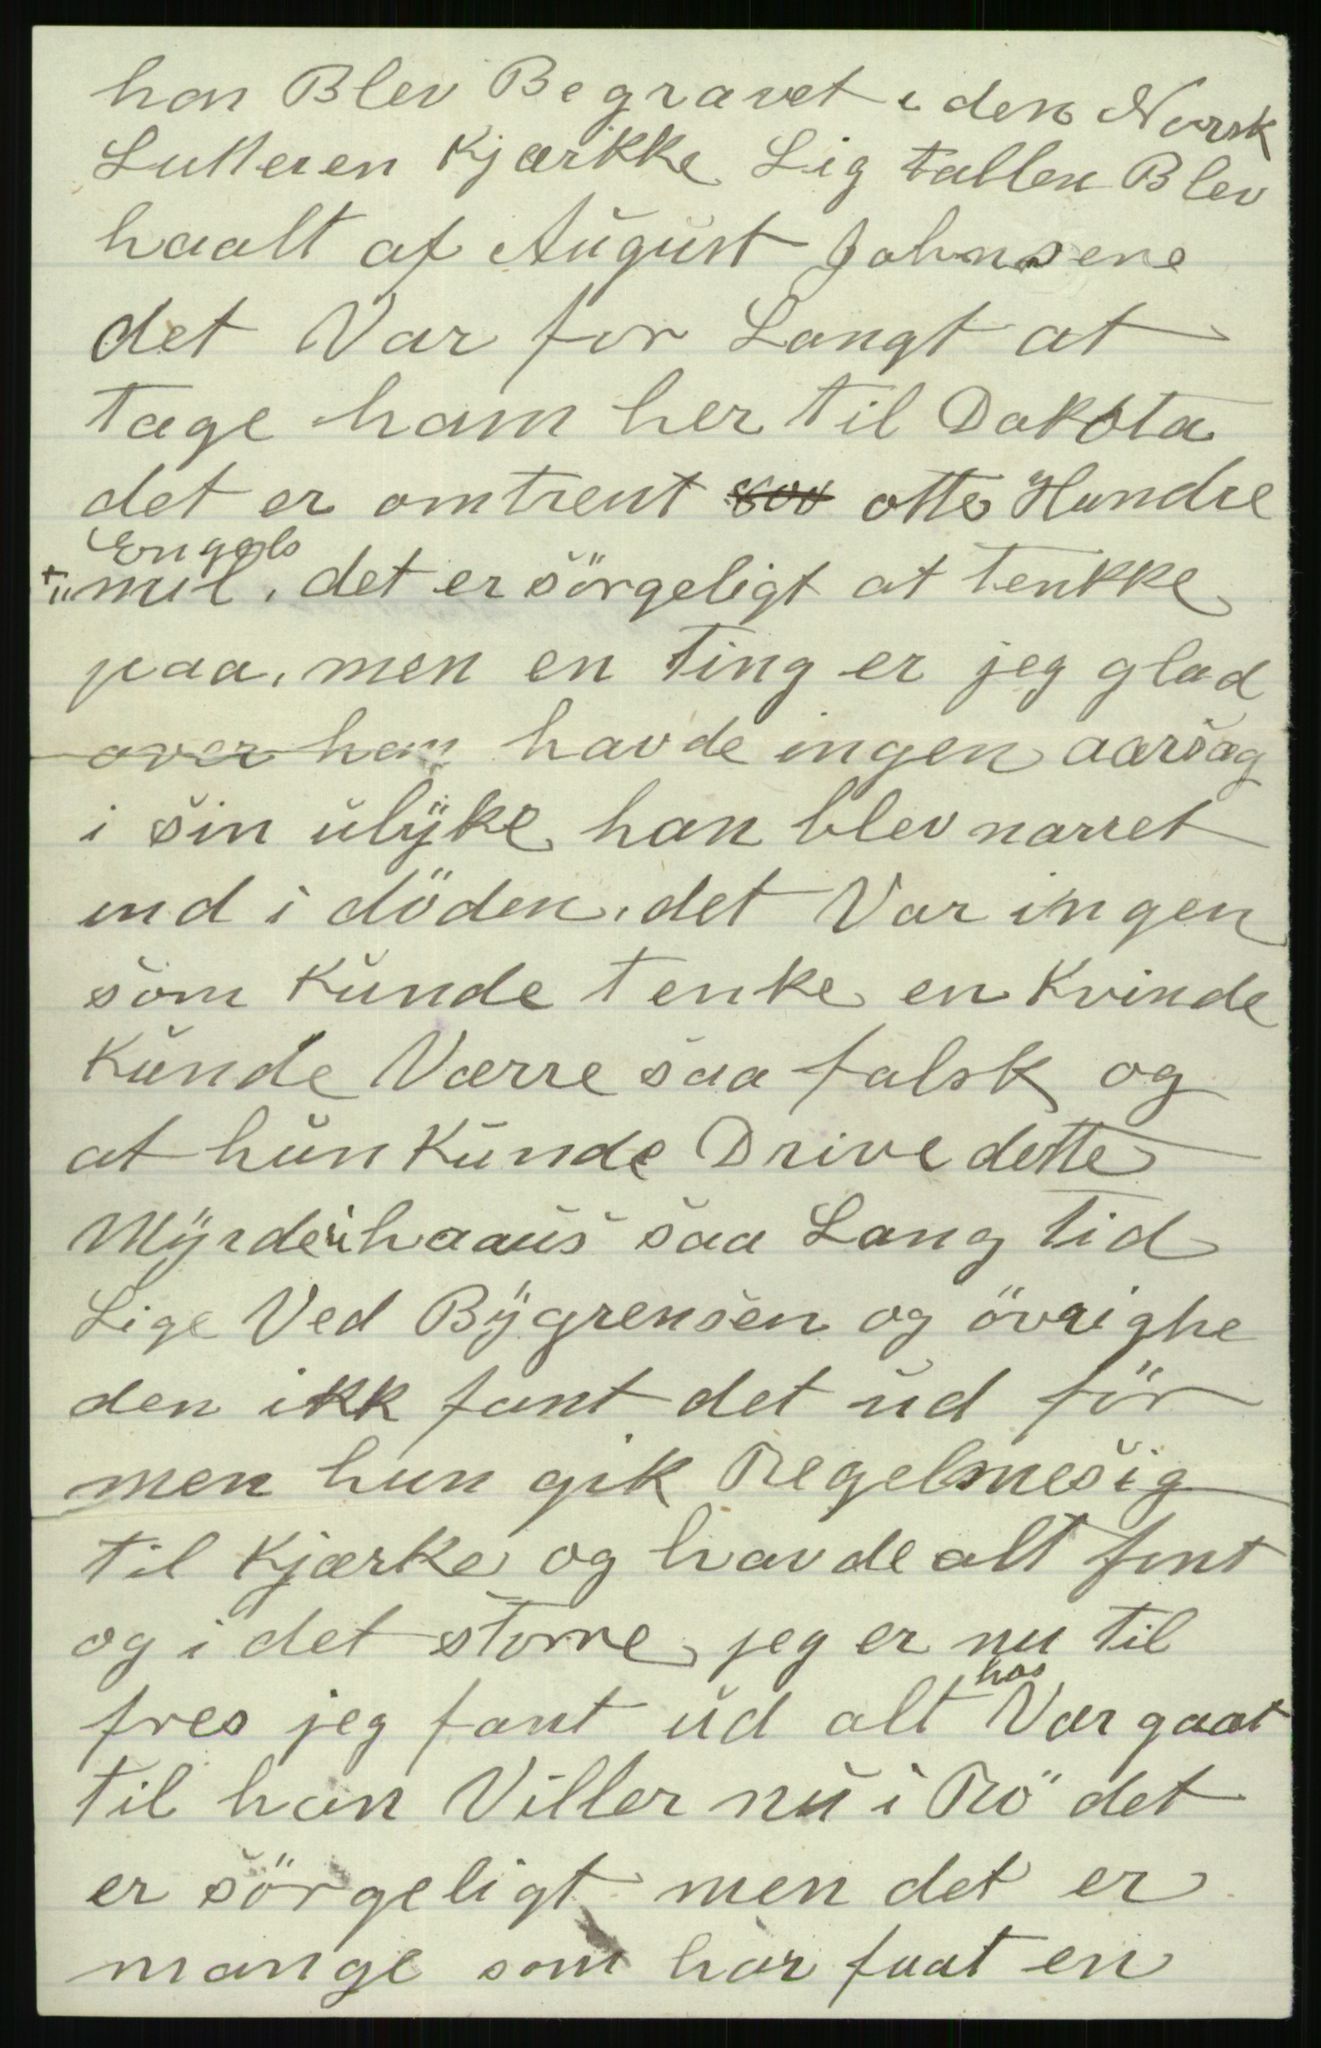 han Blev Begravet i den Norsk
Lutteren Kjærkke Lig tallen Blev
haalt af August Johnsene
det Var for Langt at
tage ham her til Dakota
det er omtrent 800 otte Hundre
Engels
+ " mil. det er sörgeligt at tenkke
paa. men en Ting er jeg glad
over han havde ingen aarsag
i sin ulÿke han blev narret
ind i döden. det Var ingen
som Kunde tenke en Kvinde
Kunde Værre saa falsk og
at hun Kunde Drive dette
Mÿrderhaaus saa Lang tid
Lige Ved Bÿgrensen og övrighe
den ikk fant det ud för
men hun gik Regelmesig
til Kjærke og havde alt fint
og i det storre jeg er nu til
fres jeg fant ud alt Vor gaat
hos
til han Viller nu i Rö det
er sörgeligt men det er
mange som har faat en